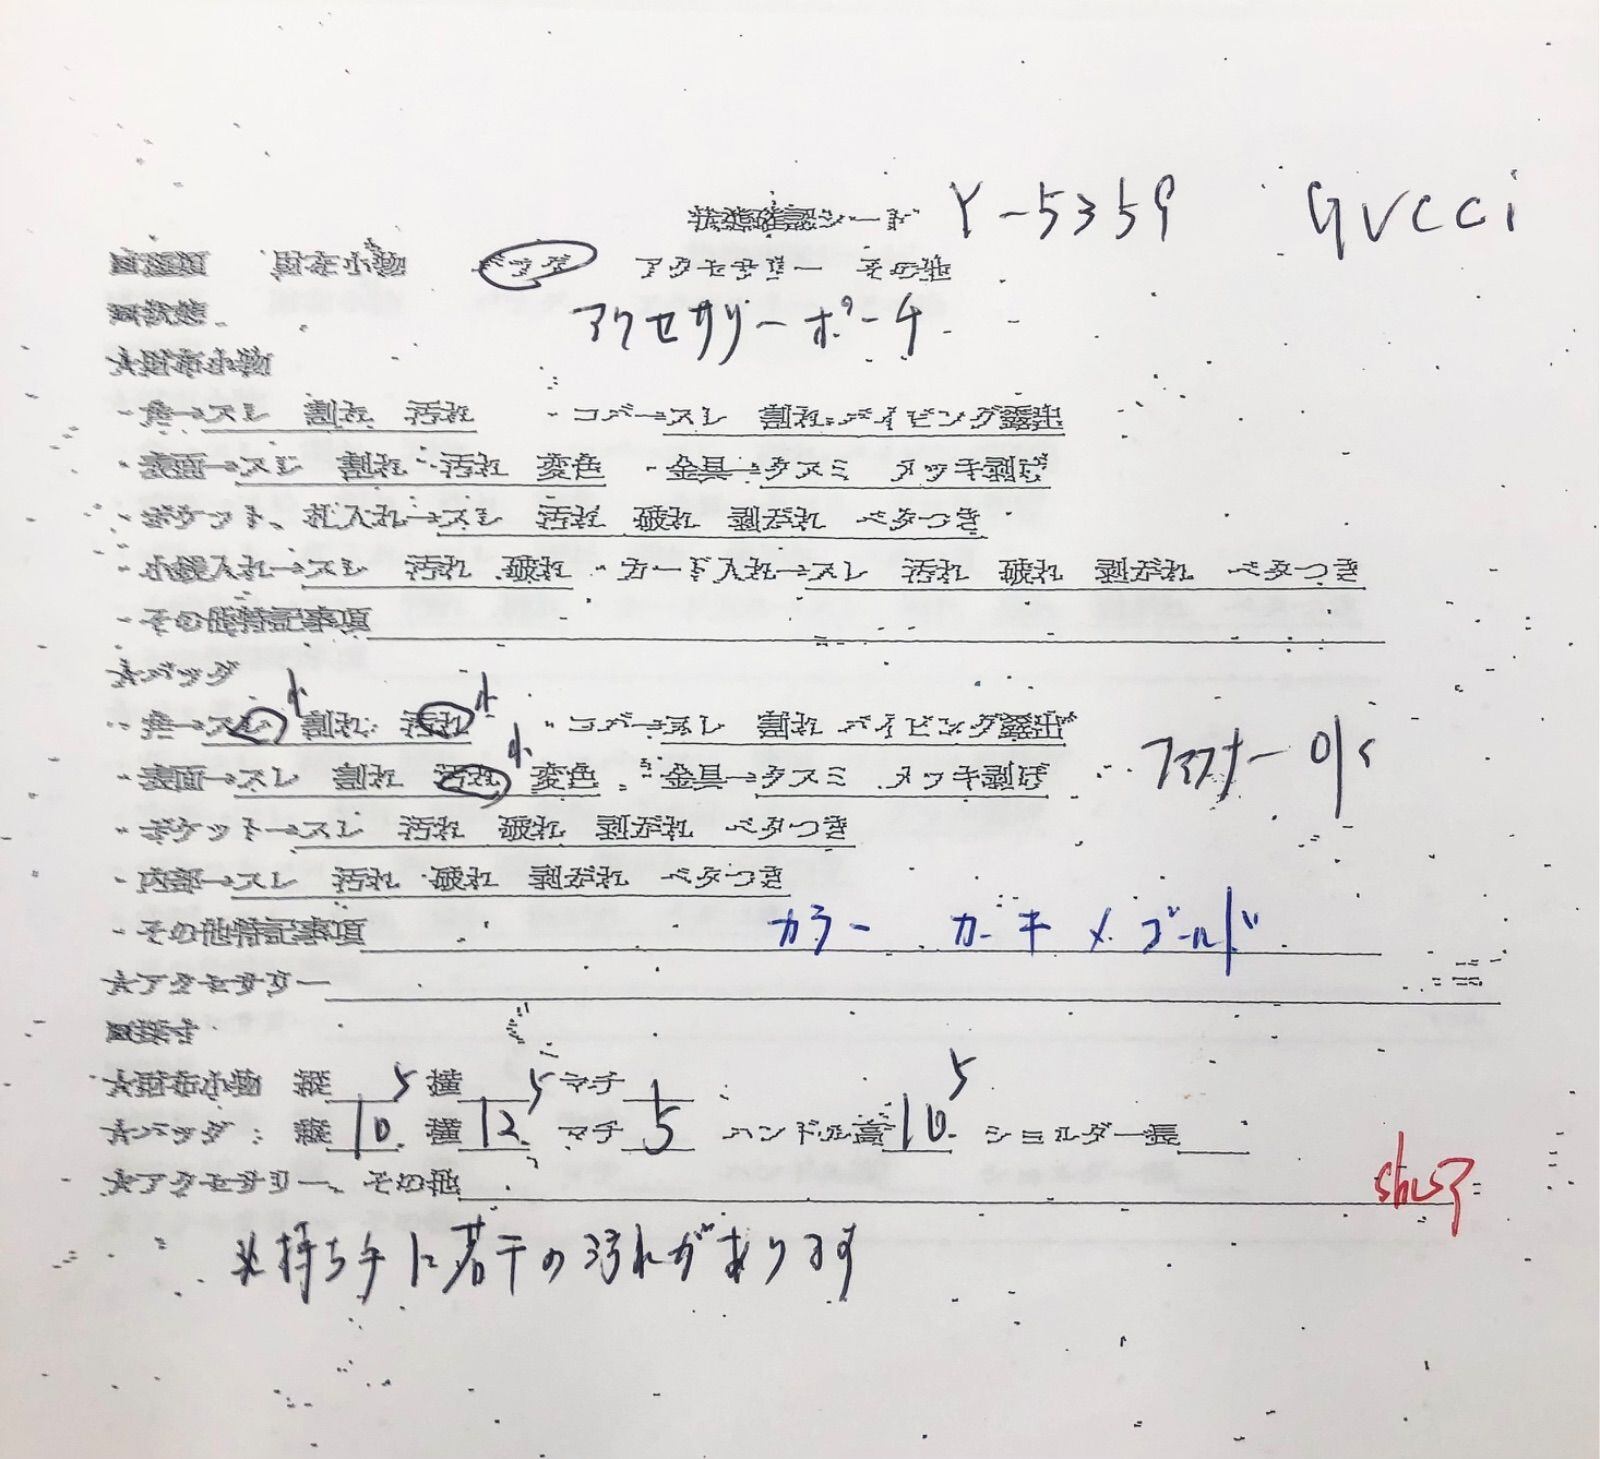 状態確認シート Y-5359 GUCCI
■種類 財布小物 バッグ アクセサリー その他
■状態 アクセサリーポーチ
★財布小物
・角→スレ 割れ 汚れ ・コバ→スレ 割れ パイピング露出
・表面→スレ 割れ 汚れ 変色 ・金具→クスミ メッキ剥げ
・ポケット、札入れ→スレ 汚れ 破れ 型崩れ ベタつき
・小銭入れ→スレ 汚れ 破れ ・カード入れ→スレ 汚れ 破れ 型崩れ ベタつき
・その他特記事項
★バッグ
・角→スレ 小 割れ 汚れ 小 ・コバ→スレ 割れ パイピング露出
・表面→スレ 割れ 汚れ 小 変色 ・金具→クスミ メッキ剥げ ファスナー OK
・ポケット→スレ 汚れ 破れ 型崩れ ベタつき
・内部→スレ 汚れ 破れ 型崩れ ベタつき
・その他特記事項 カラー カーキ × ゴールド
★アクセサリー
■採寸
★財布小物 縦 横 マチ
★バッグ:縦 10.5 横 12.5 マチ 5 ハンドル高 10.5 ショルダー長
★アクセサリー、その他
※持ち手に若干の汚れがあります